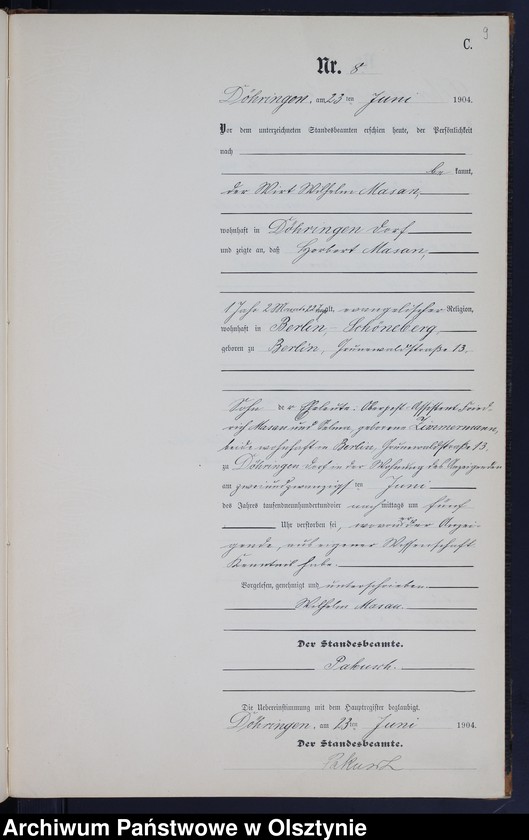 9
C.
Nr. 8
Döhringen, am 23ten Juni 1904.
Vor dem unterzeichneten Standesbeamten erschien heute, der Persönlichkeit
nach
be kannt,
der Wirt Wilhelm Masan,
wohnhaft in Döhringen Dorf
und zeigte an, daß Herbert Masan,
1 Jahr 2 Monate 22 Tage alt, evangelischer Religion,
wohnhaft in Berlin-Schöneberg,
geboren zu Berlin, Grunewaldstraße 13,
Sohn der Eheleute Oberpost-Assistent Fried-
rich Masan und Selma, geborene Zimmermann,
beide wohnhaft in Berlin, Grunewaldstraße 13,
zu Döhringen Dorf in der Wohnung des Anzeigenden
am zweiundzwanzigsten Juni
des Jahres tausendneunhundertundvier nachmittags um fünf
Uhr verstorben sei, wovon der Anzei-
gende, aus eigener Wissenschaft
Kenntnis habe.
Vorgelesen, genehmigt und unterschrieben
Wilhelm Masan.
Der Standesbeamte.
Pakusch.
Die Uebereinstimmung mit dem Hauptregister beglaubigt.
Döhringen, am 23ten Juni 1904.
Der Standesbeamte.
Pakusch
Archiwum Państwowe w Olsztynie